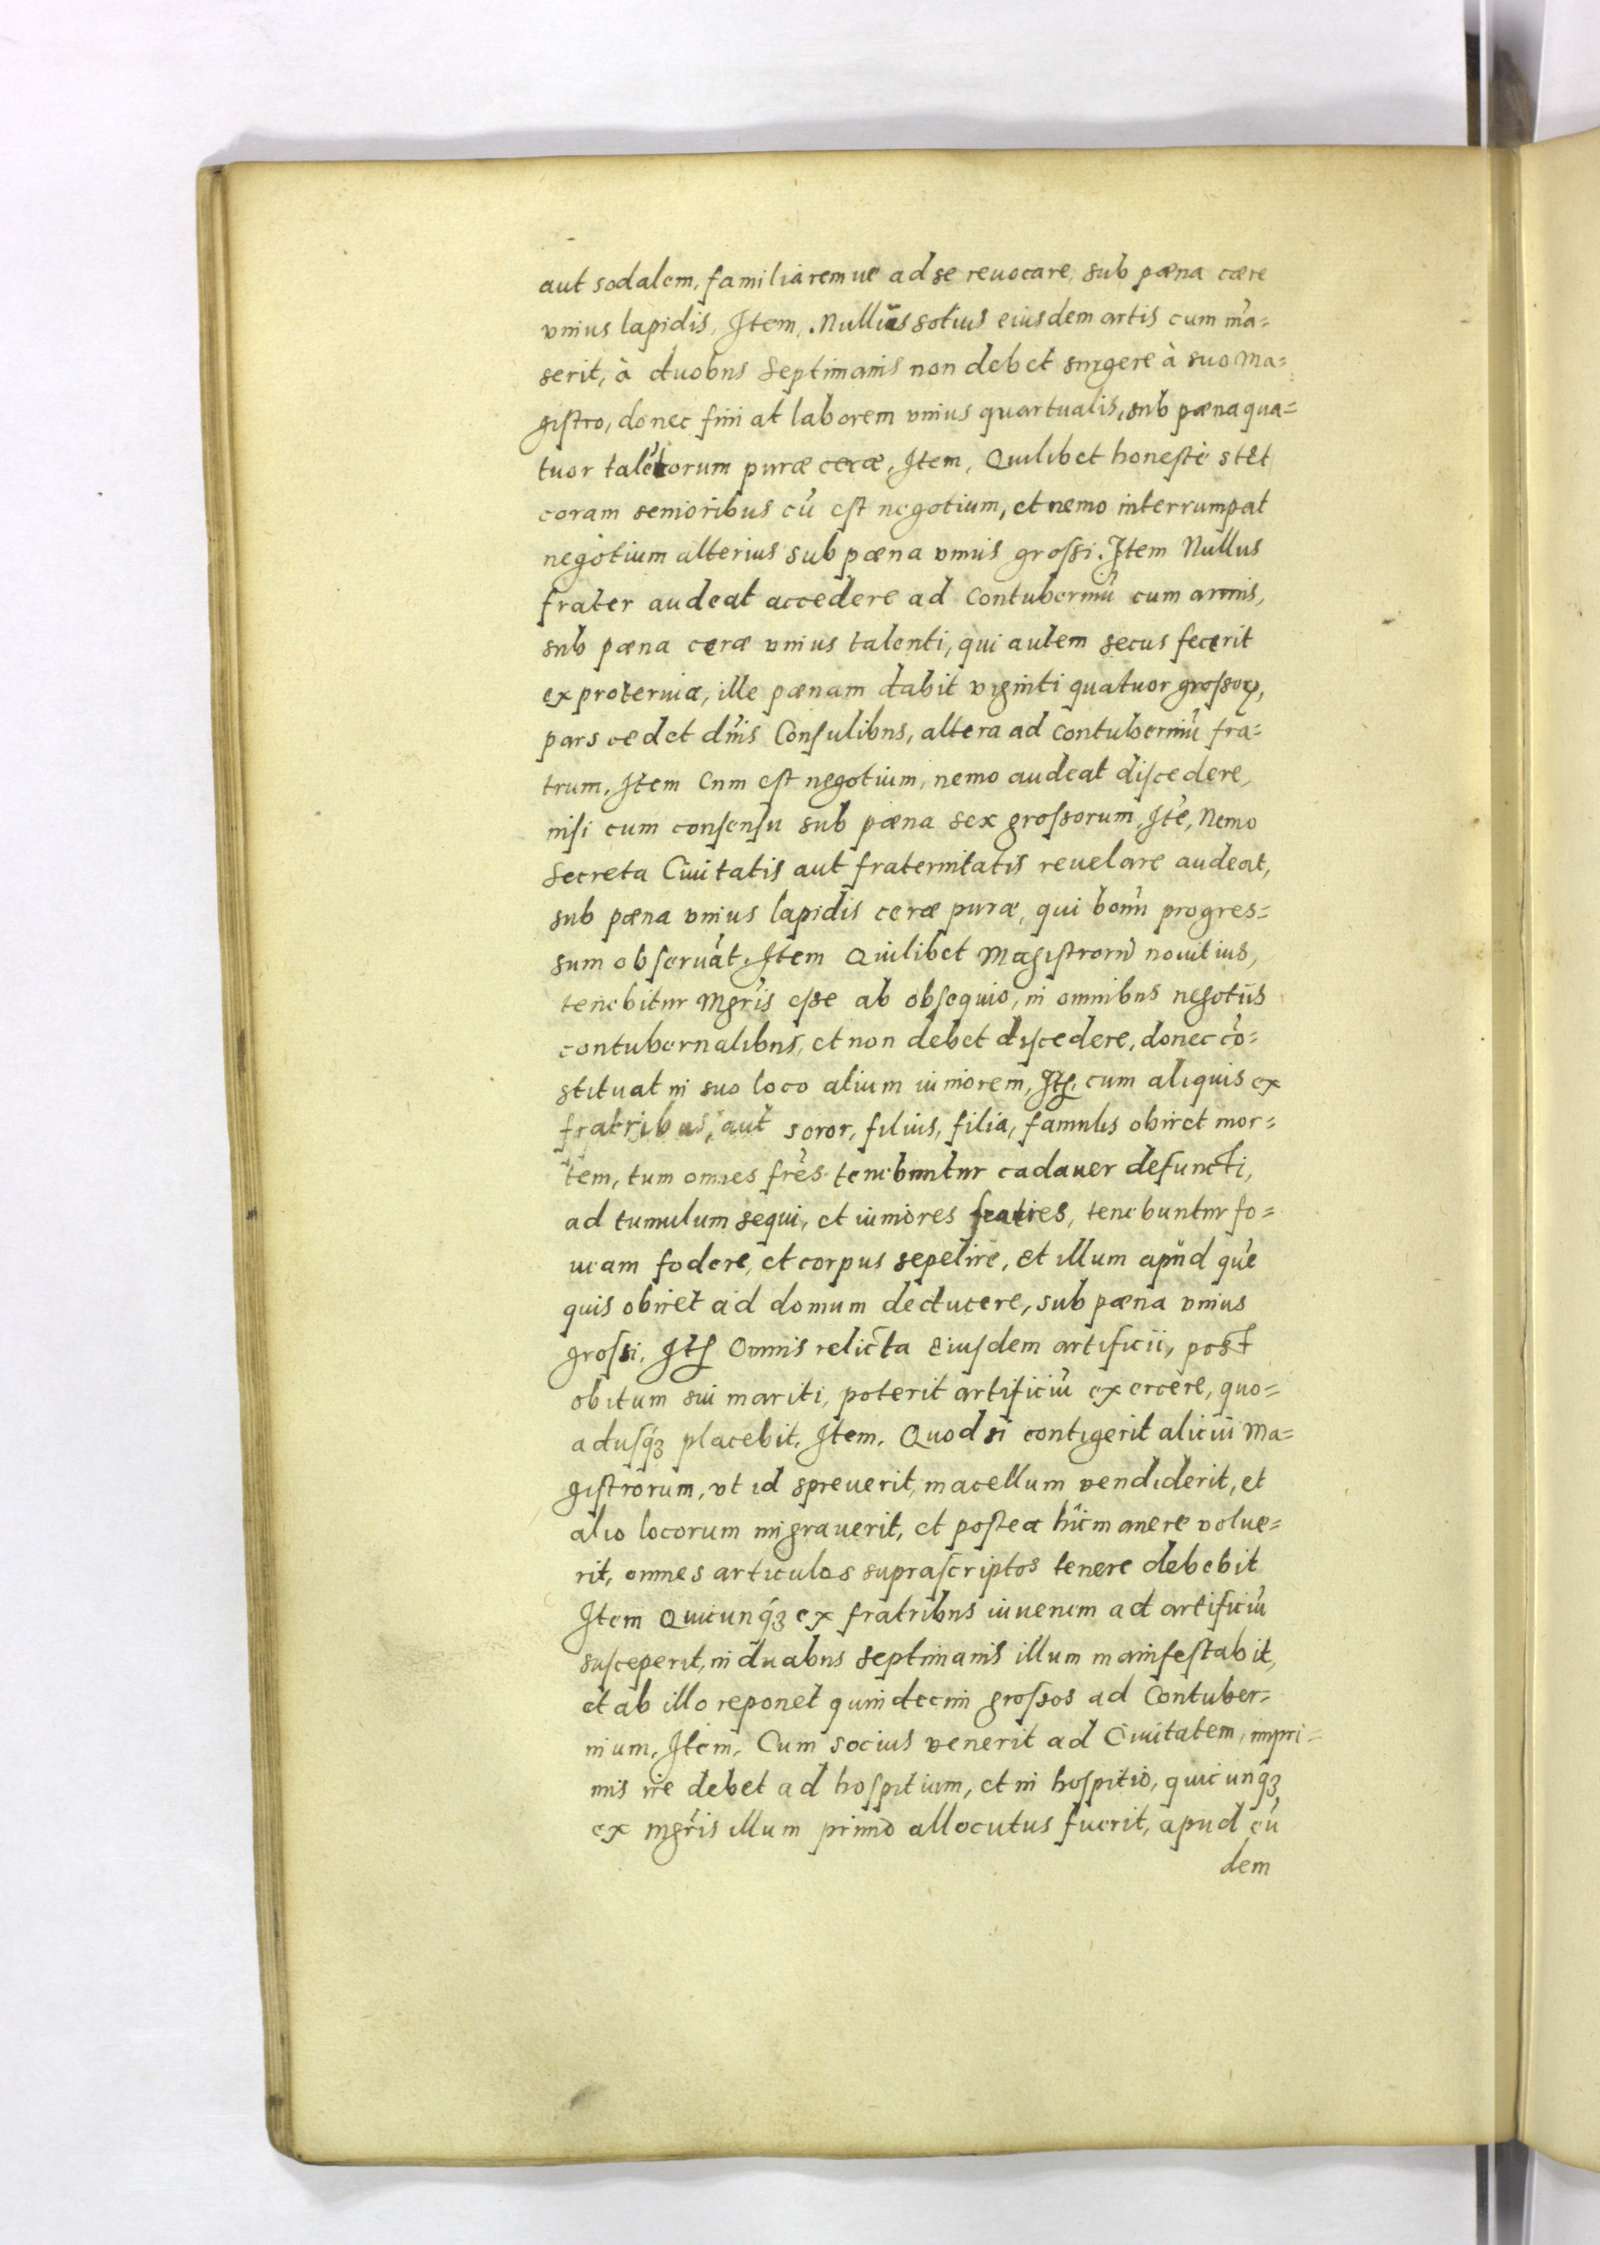 aut sodalem, familiaremue ad se reuocare, sub pæna cære
vnius lapidis, Item, Nullus sotius eiusdem artis cum má=
serit, à duobus Septimanis non debet surgere à suo Ma=
gistro, donec finiat laborem vnius quartualis, sub pæna qua=
tuor talétorum puræ ceræ, Item, Quilibet honestè stet
coram senioribus cú est negotium, et nemo interrumpat
negotium alterius sub pæna vnius grossi. Item Nullus
frater audeat accedere ad Contuberniú cum armis,
sub pæna ceræ vnius talenti, qui autem secus fecerit
ex proteruia, ille pænam dabit viginti quatuor grossoꝝ,
pars cedet dnis Consulibus, altera ad Contuberniú fra=
trum. Item Cum est negotium, nemo audeat discedere,
nisi cum consensu sub pæna sex grossorum, Ité, Nemo
Secreta Ciuitatis aut fraternitatis reuelare audeat,
sub pæna vnius lapidis ceræ puræ, qui bonú progres=
sum obseruát. Item Quilibet Magistrorú nouitius,
tenebitur Mgris esse ab obsequio, in omnibus negotiis
contubernalibus, et non debet discedere, donec có=
stituat in suo loco alium iuniorem, Itꝭ. cum aliquis ex
fratribus, aut soror, filius, filia, famulus obiret mor=
tem, tum omnes frés tenebuntur cadauer defuncti,
ad tumulum sequi, et iuniores fratres, tenebuntur fo=
ueam fodere, et corpus sepelire, et illum apud qué
quis obiret ad domum deducere, sub pæna vnius
grossi, Itꝭ Omnis relicta eiusdem artificii, post
obitum sui mariti, poterit artificiú exercere, quo=
adusqꝫ placebit. Item. Quod si contigerit alicui Ma=
gistrorum, vt id spreuerit, macellum vendiderit, et
alio locorum migrauerit, et postea hic manere volue=
rit, omnes articulos suprascriptos tenere debebit
Item Quicunqꝫ ex fratribus iuuenem ad artificiú
susceperit, in duabus septimanis illum manifestabit,
et ab illo reponet quindecim grossos ad Contuber=
nium. Item, Cum socius venerit ad Ciuitatem, impri=
mis ire debet ad hospitium, et in hospitio, quicunqꝫ
ex mgris illum primò allocutus fuerit, apud eú
dem